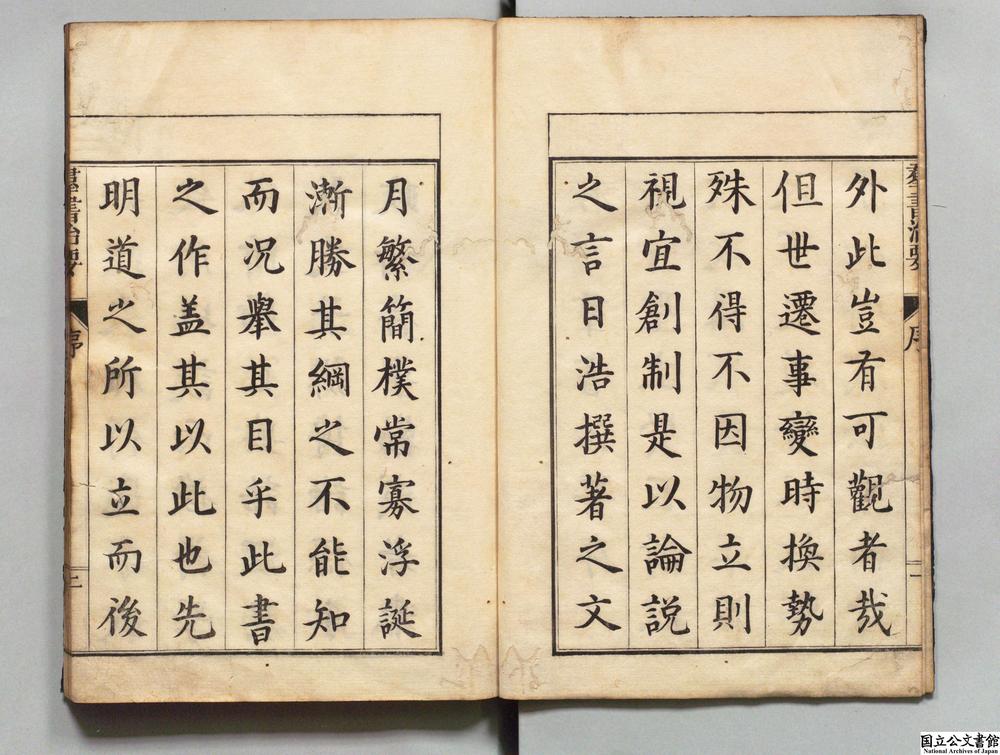 外此豈有可觀者哉
但世遷事變時換勢
殊不得不因物立則
視宜創制是以論説
之言日浩撰著之文
月繁簡樸常寡浮誕
漸勝其綱之不能知
而况舉其目乎此書
之作盖其以此也先
明道之所以立而後
羣書治要
序
一
羣書治要
序
二
国立公文書館
National Archives of Japan